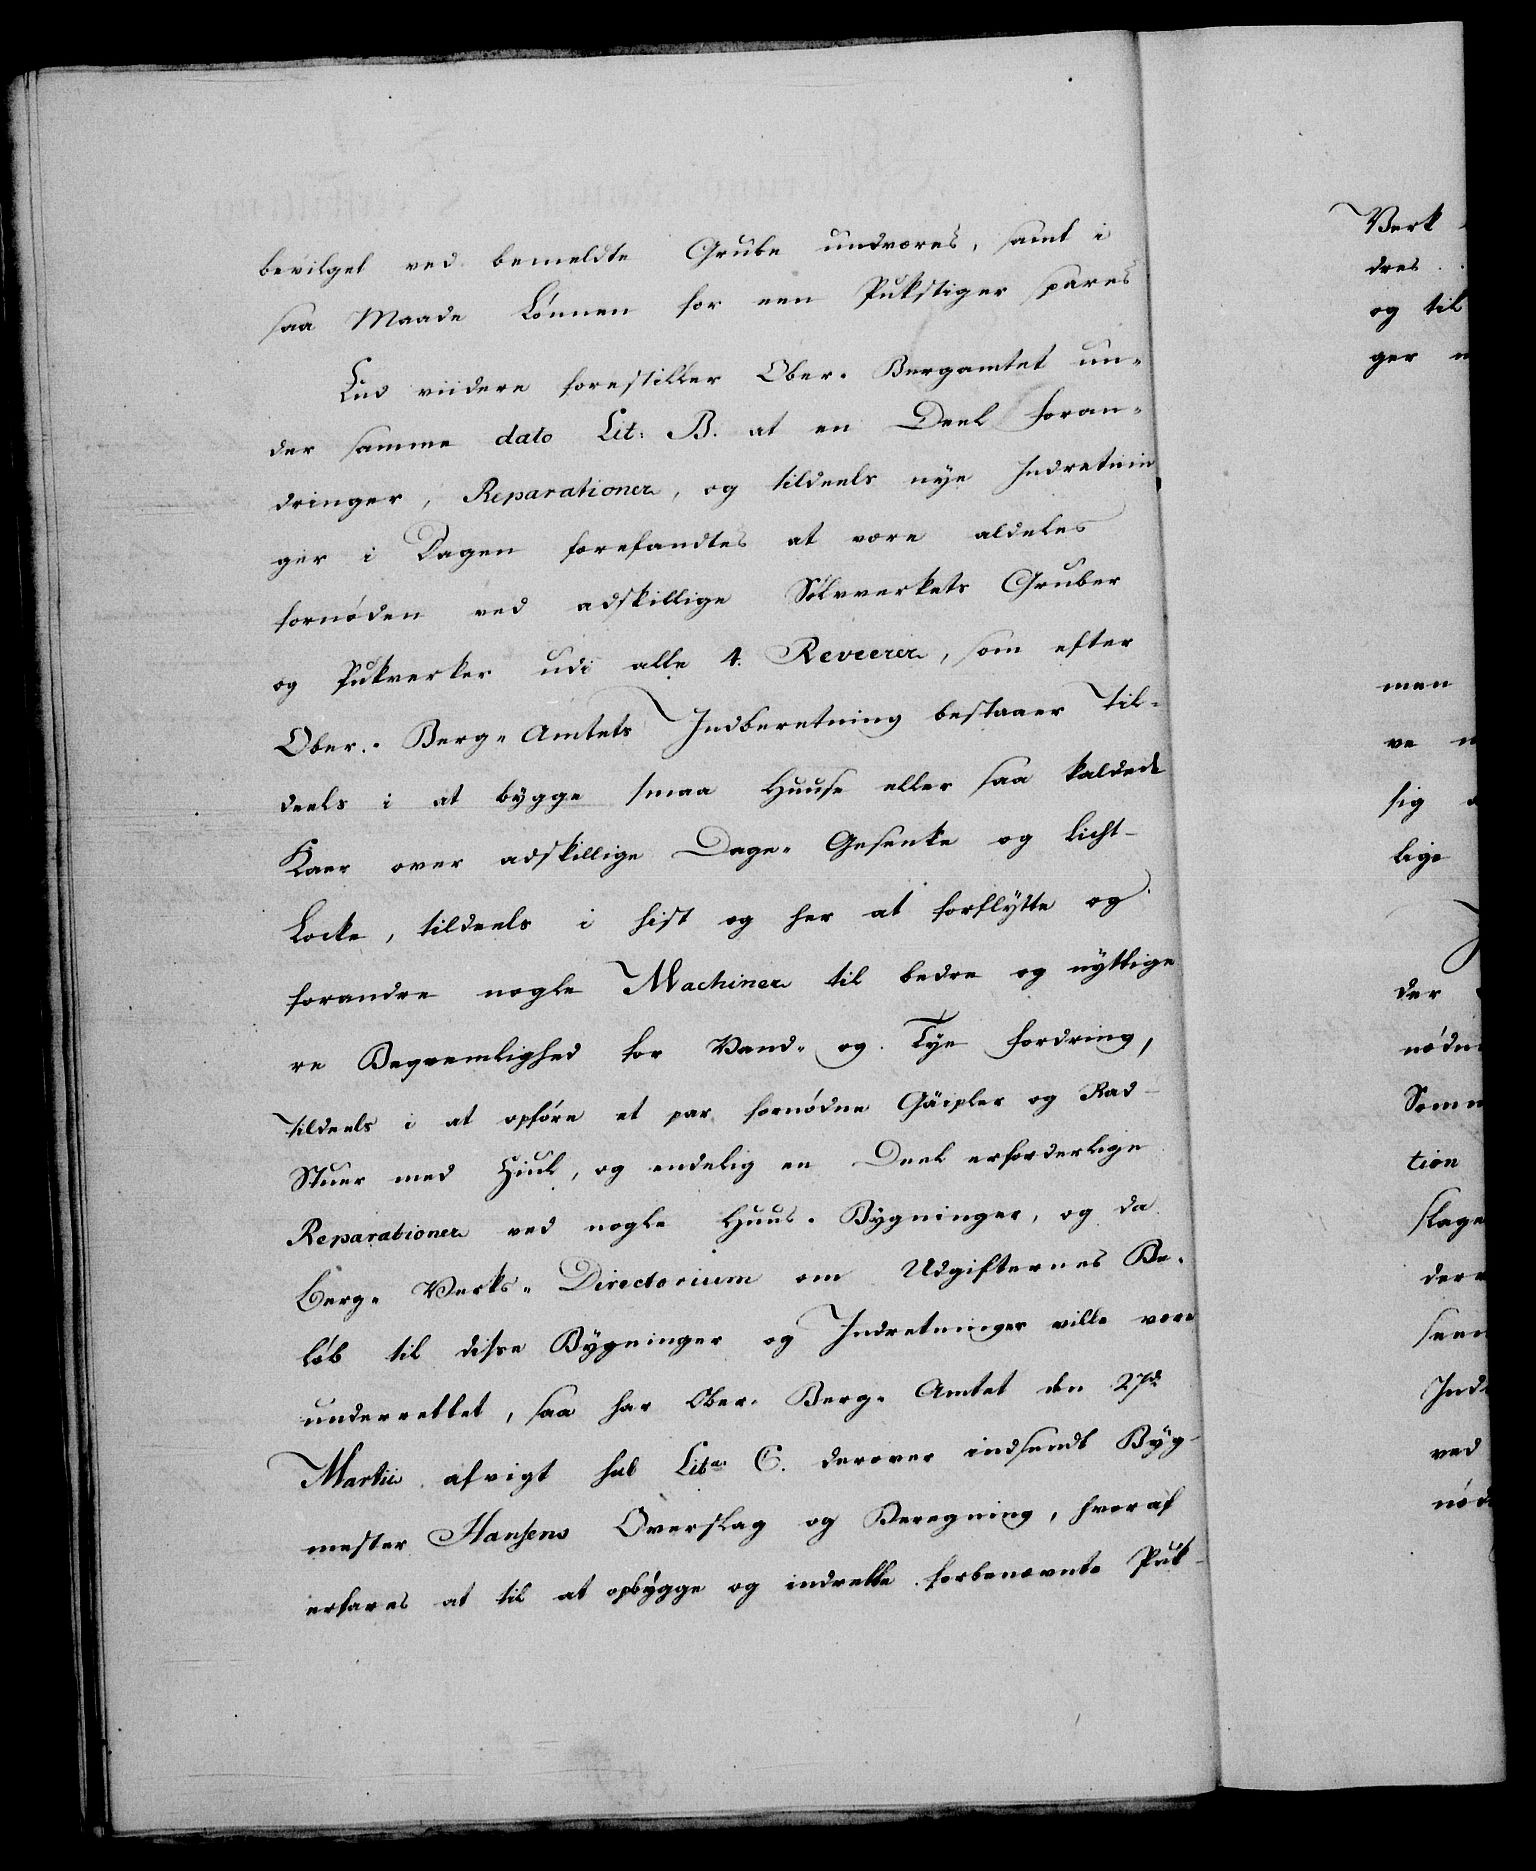 bevilget ved bemeldte Grube undværes, samt i
saa Maade Lønnen for een Pukstiger spares
End viidere forestiller Ober- Bergamtet un-
der samme dato Lit: B. at en Deel foran-
dringer, Reparationer, og tildeels nye Indretnin
ger i Dagen forefandtes at være aldeles
fornøden ved adskillige Sølvverkets Gruber
og Pukverker udi alle 4. Reveerer, som efter
Ober- Berg- Amtets Indberetning bestaaer Til-
deels i at bygge smaa Huuse eller saa kaldede
Kaer over adskillige Dage- Gesenke og Licht-
Locke, tildeels i hist og her at forflytte og
forandre nogle Machiner til bedre og nyttige
re Beqvemlighed for Vand- og Tye fordring,
tildeels i at opføre et par fornødne Gäipler og Rad-
Stuer med Hiul, og endelig en Deel erforderlige
Reparationer ved nogle Huus- Bygninger, og da
Berg- Verks- Directorium om Udgifternes Be-
løb til disse Bygninger og Indretninger ville være
underrettet, saa har Ober- Berg- Amtet den 27de
Martii afvigt sub Lit. C. derover indsendt Byg-
mester Hansens Overslag og Beregning, hvoraf
erfares at til at opbygge og indrette forbenævnte Puk-
Verk
dres
og til
ger
men
ve
sig
lige
der
nødn
Somm
tion
slage
der
seen
Ind
ved
nød